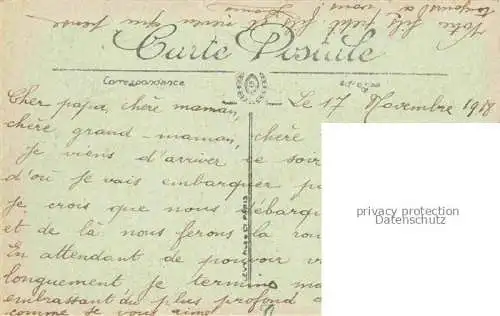 Votre fils, petit fils et neveu qui pense
toujours à vous
Carte Postale
Correspondance
Le 17 Novembre 1918
Cher papa, chère maman,
chère grand-maman, chère
Je viens d'arriver ce soir
d'où je vais embarquer
Je crois que nous débarq
et de là nous ferons la rou
En attendant de pouvoir
longuement je termine
embrassant du plus profond
comme je vous aime
privacy protection
Datenschutz